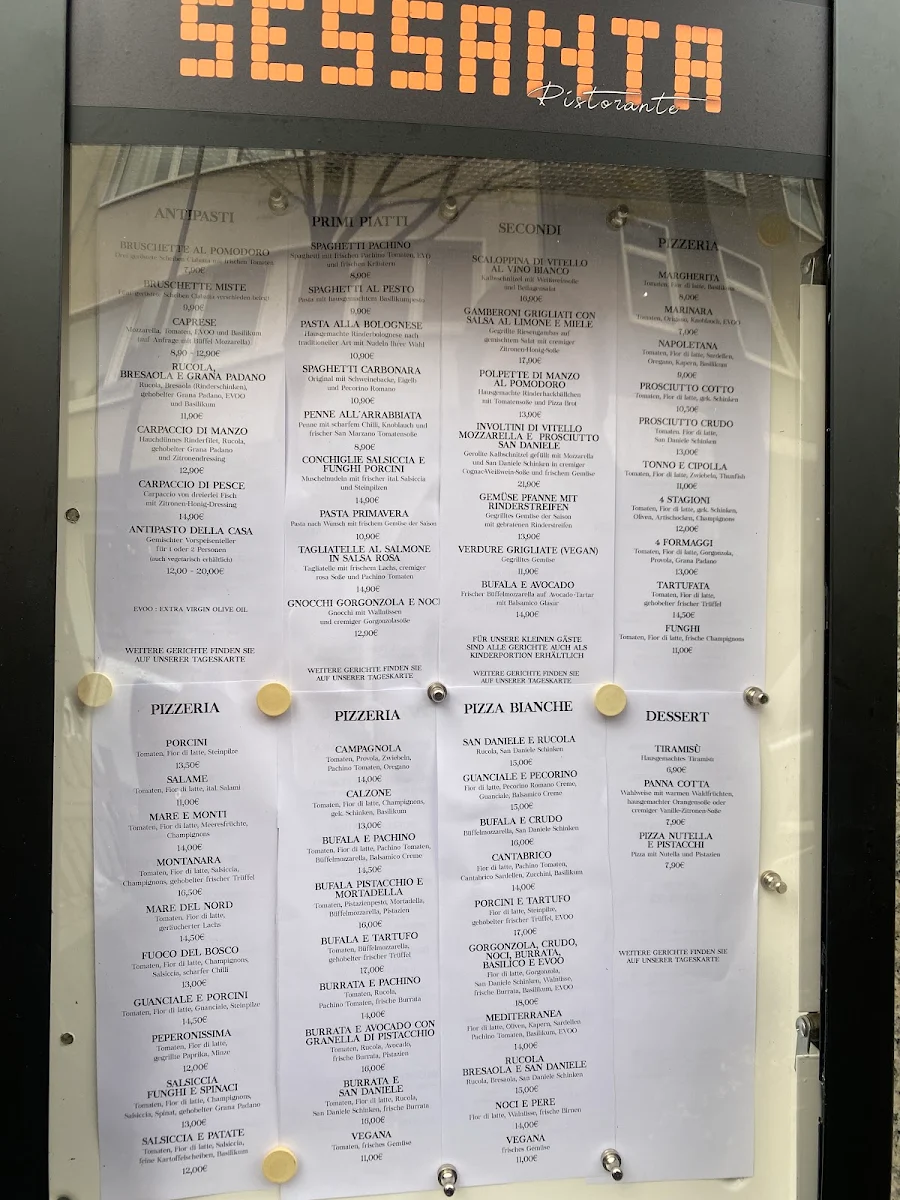 SESSANTA
Ristorante
ANTIPASTI
BRUSCHETTE AL POMODORO
Drei geröstete Scheiben Ciabatta mit frischen Tomaten
7,90€
BRUSCHETTE MISTE
9,90€
CAPRESE
Mozzarella, Tomaten, EVOO und Basilikum
(auf Anfrage mit Büffel Mozzarella)
8,90 - 12,90€
RUCOLA,
BRESAOLA E GRANA PADANO
Rucola, Bresaola (Rinderschinken),
gehobelter Grana Padano, EVOO
und Basilikum
11,90€
CARPACCIO DI MANZO
Hauchdünnes Rinderfilet, Rucola,
gehobelter Grana Padano
und Zitronendressing
12,90€
CARPACCIO DI PESCE
Carpaccio von dreierlei Fisch
mit Zitronen-Honig-Dressing
14,90€
ANTIPASTO DELLA CASA
Gemischter Vorspeisenteller
Für 1 oder 2 Personen
(auch vegetarisch erhältlich)
12,00 - 20,00€
EVOO : EXTRA VIRGIN OLIVE OIL
WEITERE GERICHTE FINDEN SIE
AUF UNSERER TAGESKARTE
PRIMI PIATTI
SPAGHETTI PACHINO
Spaghetti mit frischen Pachino Tomaten, EVO
und frischen Kräutern
8,90€
SPAGHETTI AL PESTO
Pasta mit hausgemachtem Basilikumpesto
9,90€
PASTA ALLA BOLOGNESE
Hausgemachte Rinderbolognese nach
traditioneller Art mit Nudeln Ihrer Wahl
10,90€
SPAGHETTI CARBONARA
Original mit Schweinebacke, Eigelb
und Pecorino Romano
10,90€
PENNE ALL'ARRABBIATA
Penne mit scharfem Chilli, Knoblauch und
frischer San Marzano Tomatensoße
8,90€
CONCHIGLIE SALSICCIA E
FUNGHI PORCINI
Muschelnudeln mit frischer ital. Salsiccia
und Steinpilzen
14,90€
PASTA PRIMAVERA
Pasta nach Wunsch mit frischem Gemüse der Saison
10,90€
TAGLIATELLE AL SALMONE
IN SALSA ROSA
Tagliatelle mit frischem Lachs, cremiger
rosa Soße und Pachino Tomaten
14,90€
GNOCCHI GORGONZOLA E NOCI
Gnocchi mit Walnüssen
und cremiger Gorgonzolasoße
12,90€
WEITERE GERICHTE FINDEN SIE
AUF UNSERER TAGESKARTE
SECONDI
SCALOPPINA DI VITELLO
AL VINO BIANCO
Kalbsschnitzel mit Weißweinsoße
und Beilagensalat
16,90€
GAMBERONI GRIGLIATI CON
SALSA AL LIMONE E MIELE
Gegrillte Riesengarnelen auf
gemischtem Salat mit cremiger
Zitronen-Honig-Soße
17,90€
POLPETTE DI MANZO
AL POMODORO
Hausgemachte Rinderhackbällchen
mit Tomatensoße und Pizza Brot
13,90€
INVOLTINI DI VITELLO
MOZZARELLA E PROSCIUTTO
SAN DANIELE
Gerollte Kalbschnitzel gefüllt mit Mozzarella
und San Daniele Schinken in cremiger
Cognac-Weißwein-Soße und frischem Gemüse
21,90€
GEMÜSE PFANNE MIT
RINDERSTREIFEN
Gegrilltes Gemüse der Saison
mit gebratenen Rinderstreifen
13,90€
VERDURE GRIGLIATE (VEGAN)
Gegrilltes Gemüse
11,90€
BUFALA E AVOCADO
Frischer Büffelmozzarella auf Avocado-Tartar
mit Balsamico Glasur
14,90€
FÜR UNSERE KLEINEN GÄSTE
SIND ALLE GERICHTE AUCH ALS
KINDERPORTION ERHÄLTLICH
WEITERE GERICHTE FINDEN SIE
AUF UNSERER TAGESKARTE
PIZZERIA
MARGHERITA
Tomaten, Fior di latte, Basilikum
8,00€
MARINARA
Tomaten, Origano, Knoblauch, EVOO
7,00€
NAPOLETANA
Tomaten, Fior di latte, Sardellen,
Oregano, Kapern, Basilikum
9,00€
PROSCIUTTO COTTO
Tomaten, Fior di latte, gek. Schinken
10,50€
PROSCIUTTO CRUDO
Tomaten, Fior di latte,
San Daniele Schinken
13,00€
TONNO E CIPOLLA
Tomaten, Fior di latte, Zwiebeln, Thunfish
11,00€
4 STAGIONI
Tomaten, Fior di latte, gek. Schinken,
Oliven, Artischocken, Champignons
12,00€
4 FORMAGGI
Tomaten, Fior di latte, Gorgonzola,
Provola, Grana Padano
13,00€
TARTUFATA
Tomaten, Fior di latte,
gehobelter frischer Trüffel
14,50€
FUNGHI
Tomaten, Fior di latte, frische Champignons
11,00€
PIZZERIA
PORCINI
Tomaten, Fior di latte, Steinpilze
13,50€
SALAME
Tomaten, Fior di latte, ital. Salami
11,00€
MARE E MONTI
Tomaten, Fior di latte, Meeresfrüchte,
Champignons
14,00€
MONTANARA
Tomaten, Fior di latte, Salsiccia,
Champignons, gehobelter frischer Trüffel
16,50€
MARE DEL NORD
Tomaten, Fior di latte,
geräucherter Lachs
14,50€
FUOCO DEL BOSCO
Tomaten, Fior di latte, Champignons,
Salsiccia, scharfer Chilli
13,00€
GUANCIALE E PORCINI
Tomaten, Fior di latte, Guanciale, Steinpilze
14,50€
PEPERONISSIMA
Tomaten, Fior di latte,
gegrillte Paprika, Minze
12,00€
SALSICCIA
FUNGHI E SPINACI
Tomaten, Fior di latte, Champignons,
Salsiccia, Spinat, gehobelter Grana Padano
13,00€
SALSICCIA E PATATE
Tomaten, Fior di latte, Salsiccia,
feine Kartoffelscheiben, Basilikum
12,00€
PIZZERIA
CAMPAGNOLA
Tomaten, Provola, Zwiebeln,
Pachino Tomaten, Oregano
14,00€
CALZONE
Tomaten, Fior di latte, Champignons,
gek. Schinken, Basilikum
13,00€
BUFALA E PACHINO
Tomaten, Fior di latte, Pachino Tomaten,
Büffelmozzarella, Balsamico Creme
14,50€
BUFALA PISTACCHIO E
MORTADELLA
Tomaten, Pistazienpesto, Mortadella,
Büffelmozzarella, Pistazien
16,00€
BUFALA E TARTUFO
Tomaten, Büffelmozzarella,
gehobelter frischer Trüffel
17,00€
BURRATA E PACHINO
Tomaten, Rucola,
Pachino Tomaten, frische Burrata
14,00€
BURRATA E AVOCADO CON
GRANELLA DI PISTACCHIO
Tomaten, Rucola, Avocado,
frische Burrata, Pistazien
16,00€
BURRATA E
SAN DANIELE
Tomaten, Fior di latte, Rucola,
San Daniele Schinken, frische Burrata
16,00€
VEGANA
Tomaten, frisches Gemüse
11,00€
PIZZA BIANCHE
SAN DANIELE E RUCOLA
Rucola, San Daniele Schinken
15,00€
GUANCIALE E PECORINO
Fior di latte, Pecorino Romano Creme,
Guanciale, Balsamico Creme
15,00€
BUFALA E CRUDO
Büffelmozzarella, San Daniele Schinken
16,00€
CANTABRICO
Fior di latte, Pachino Tomaten,
Cantabrico Sardellen, Zucchini, Basilikum
14,00€
PORCINI E TARTUFO
Fior di latte, Steinpilze,
gehobelter frischer Trüffel, EVOO
17,00€
GORGONZOLA, CRUDO,
NOCI, BURRATA,
BASILICO E EVOO
Fior di latte, Gorgonzola,
San Daniele Schinken, Walnüsse,
frische Burrata, Basilikum, EVOO
18,00€
MEDITERRANEA
Fior di latte, Oliven, Kapern, Sardellen
Pachino Tomaten, Basilikum, EVOO
14,00€
RUCOLA
BRESAOLA E SAN DANIELE
Rucola, Bresaola, San Daniele Schinken
15,00€
NOCI E PERE
Fior di latte, Walnüsse, frische Birnen
14,00€
VEGANA
frisches Gemüse
11,00€
DESSERT
TIRAMISÙ
Hausgemachtes Tiramisù
6,90€
PANNA COTTA
Wahlweise mit warmen Waldfrüchten,
hausgemachter Orangensoße oder
cremiger Vanille-Zitronen-Soße
7,90€
PIZZA NUTELLA
E PISTACCHI
Pizza mit Nutella und Pistazien
7,90€
WEITERE GERICHTE FINDEN SIE
AUF UNSERER TAGESKARTE